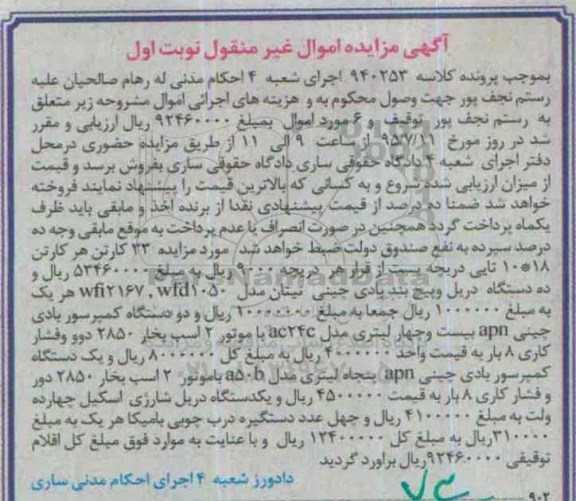 آگهی مزایده اموال غیر منقول نوبت اول
بموجب پرونده کلاسه ۹۴۰۲۵۳ اجرای شعبه ۴ احکام مدنی له رهام صالحیان علیه
رستم نجف پور جهت وصول محکوم به و هزینه های اجرائی اموال مشروحه زیر متعلق
به رستم نجف پور توقیف و ۶ مورد اموال بمبلغ ۹۲۴۶۰۰۰۰ ریال ارزیابی و مقرر
شد در روز مورخ ساعت ۹ الی ۱۱ از طریق مزایده حضوری درمحل
دفتر اجرای شعبه ۴ دادگاه حقوقی ساری دادگاه حقوقی ساری بفروش برسد و قیمت
از میزان ارزیابی شده شروع و به کسانی که بالاترین قیمت را پیشنهاد نمایند فروخته
خواهد شد ضمنا ده درصد از قیمت پیشنهادی نقدا از برنده اخذ و مابقی باید ظرف
یکماه پرداخت گردد همچنین در صورت انصراف یا عدم پرداخت به موقع مابقی وجه ده
درصد سپرده به نفع صندوق دولت ضبط خواهد شد مورد مزایده ۳۳ کارتن هر کارتن
۱۸*۱۰ تایی دریچه پست از قرار هر دریچه ۹۰۰۰ ریال به مبلغ ۵۳۴۶۰۰۰۰ ریال و
ده دستگاه دریل وپیچ بند بادی چینی نیتان مدل wfi۲۱۶۷ , wfd۱۰۵۰ هر یک
به مبلغ ۱۰۰۰۰۰۰ ریال جمعا به مبلغ ۱۰۰۰۰۰۰۰ ریال و دو دستگاه کمپرسور بادی
چینی apn بیست وچهار لیتری مدل ac۲۴c با موتور ۲ اسب بخار ۲۸۵۰ دوو وفشار
کاری ۸ بار به قیمت واحد ۴۰۰۰۰۰۰ ریال به مبلغ کل ۸۰۰۰۰۰۰ ریال و یک دستگاه
کمپرسور بادی چینی apn پنجاه لیتری مدل a۵۰b باموتور ۲ اسب بخار ۲۸۵۰ دور
و فشار کاری ۸ بار به قیمت ۴۵۰۰۰۰۰ ریال و یکدستگاه دریل شارژی اسکیل چهارده
ولت به مبلغ ۴۱۰۰۰۰۰ ریال و چهل عدد دستگیره درب چوبی بامیکا هر یک به مبلغ
۳۱۰۰۰۰ ریال به مبلغ کل ۱۲۴۰۰۰۰۰ ریال و با عنایت به موارد فوق مبلغ کل اقلام
توقیفی ۹۲۴۶۰۰۰۰ ریال براورد گردید
دادورز شعبه ۴ اجرای احکام مدنی ساری
۹۰۲